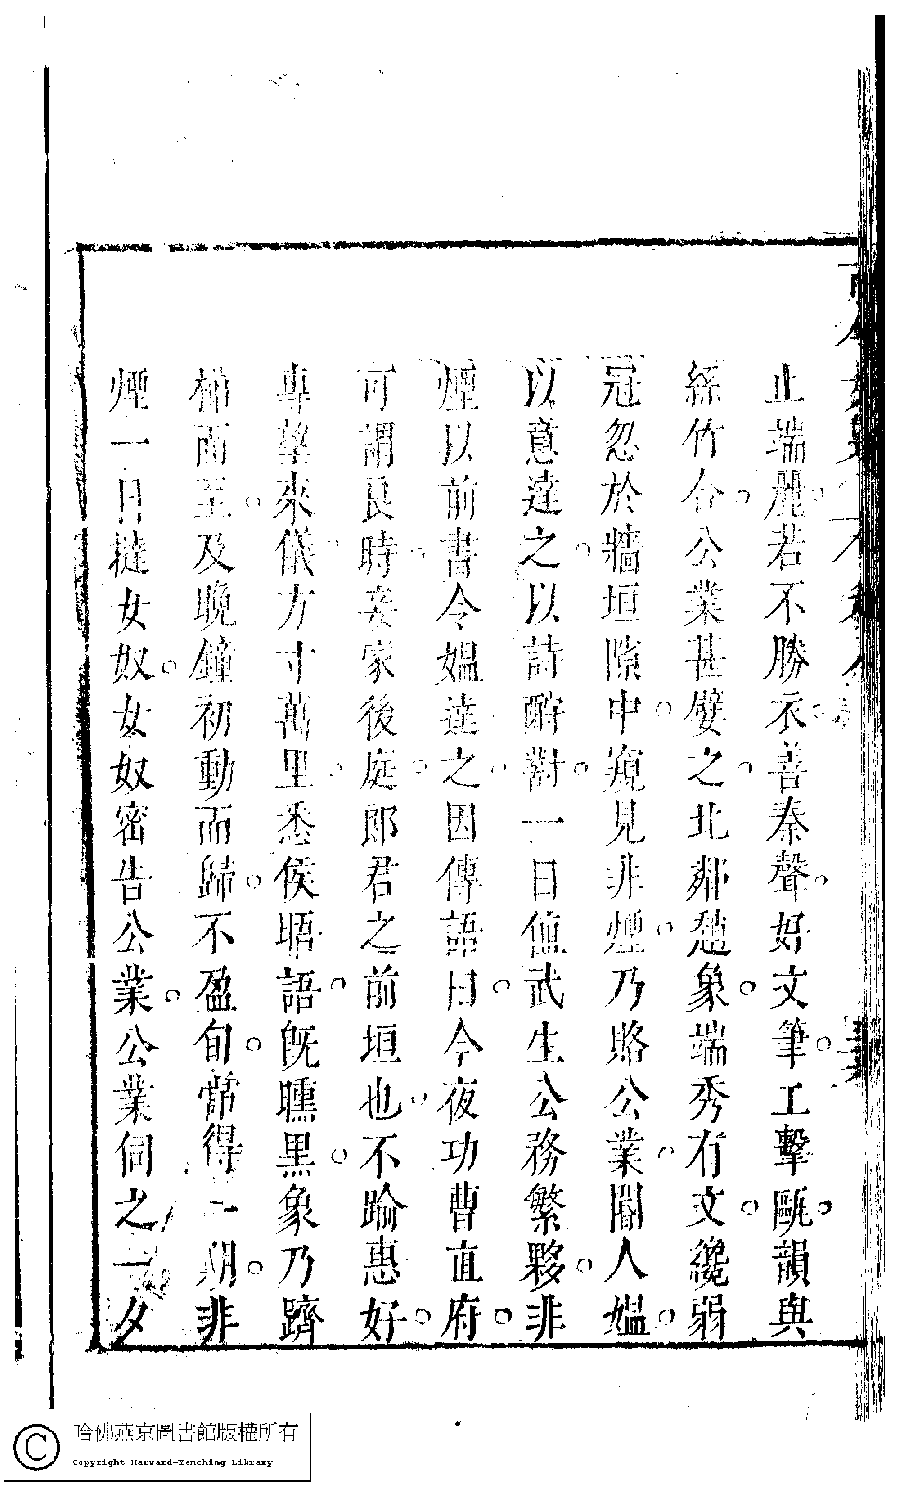 止端麗若不勝衣善秦聲好文筆工擊甌韻與
絲竹合公業甚嬖之北鄰趙象端秀有文纔弱
冠忽於牆垣隙中窺見非煙乃賂公業閽人媼
以意達之以詩酧對一日値武生公務繁夥非
煙以前書令媼達之因傳語曰今夜功曹直府
可謂良時妾家後庭郎君之前垣也不踰惠好
專望來儀方寸萬里悉俟晤語旣曛黑象乃躋
梯而至及曉鐘初動而歸不盈旬常得一期非
煙一日撻女奴女奴密告公業公業伺之一夕
哈佛燕京圖書館版權所有
Copyright Harvard-Yenching Library